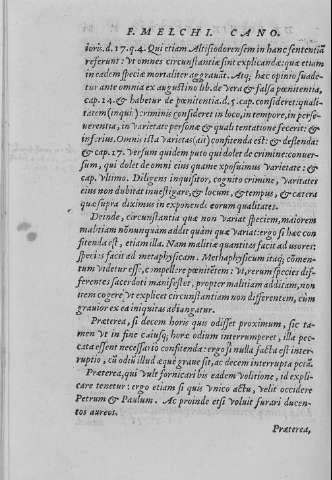 F. MELCHI. CANO.
ioris.d.17.q.4. Qui etiam Altisiodorensem in hanc sententiã
referunt: vt omnes circunstantiæ sint explicandæ: quæ etium
in eadem specie mortaliter aggrauãt. Atq; hæc opinio suade-
tur ante omnia ex augustino lib. de vera & falsa pœnitentia,
cap.14. & habetur de pœnitentia.d.5. cap. consideret: quali-
tatem (inqui) criminis consideret in loco, in tempore, in perse-
uerentia, in varietate personæ & quali tentatione fecerit: &
inferius. Omnis ista varietas (ait) confitenda est: & deflenda:
& cap. 17. versum quidem puto qui dolet de crimine: conuer-
sum, qui dolet de omni eius quàme exposuimus varietate: &
cap. vltimo. Diligens inquisitor, cognito crimine, varietates
eius non dubitat inuestigare, & locum, & tempus, & cætera
quæ supra diximus in exponende eorum qualitates.
Deinde, circunstantia quæ non variat speciem, maiorem
malitiam nõnunquàm addit quàm quæ variat: ergo si hæc con
fitenda est, etiam illa. Nam malitiæ quantitas facit ad vsores:
species facit ad metaphysicam. Methaphysicum itaq; cõmen-
tum videtur esse, compellere pœnitẽtem: vt, rerum species dif-
ferentes sacerdoti manifestet, propter malitiam additam, non
item cogere vt explicet circunstantiam non differentem, cùm
grauior ex ea iniquitas adiungatur.
Præterea, si decem horis quis odisset proximum, sic ta-
men vt in fine cuiusq; horæ odium interrumperet, illa pec-
cata essent necessario confitenda: ergo si nulla facta est inter-
ruptio, cù odiũ illud æque graue sit, ac decem interrupta pctã.
Præterea, qui vult fornicari bis eadem volitione, id expli-
care tenetur: ergo etiam si quis vnico actu, velit occidere
Petrum & Paulum. Ac proinde etsi voluit furari ducen-
tos aureos.
Præterea,